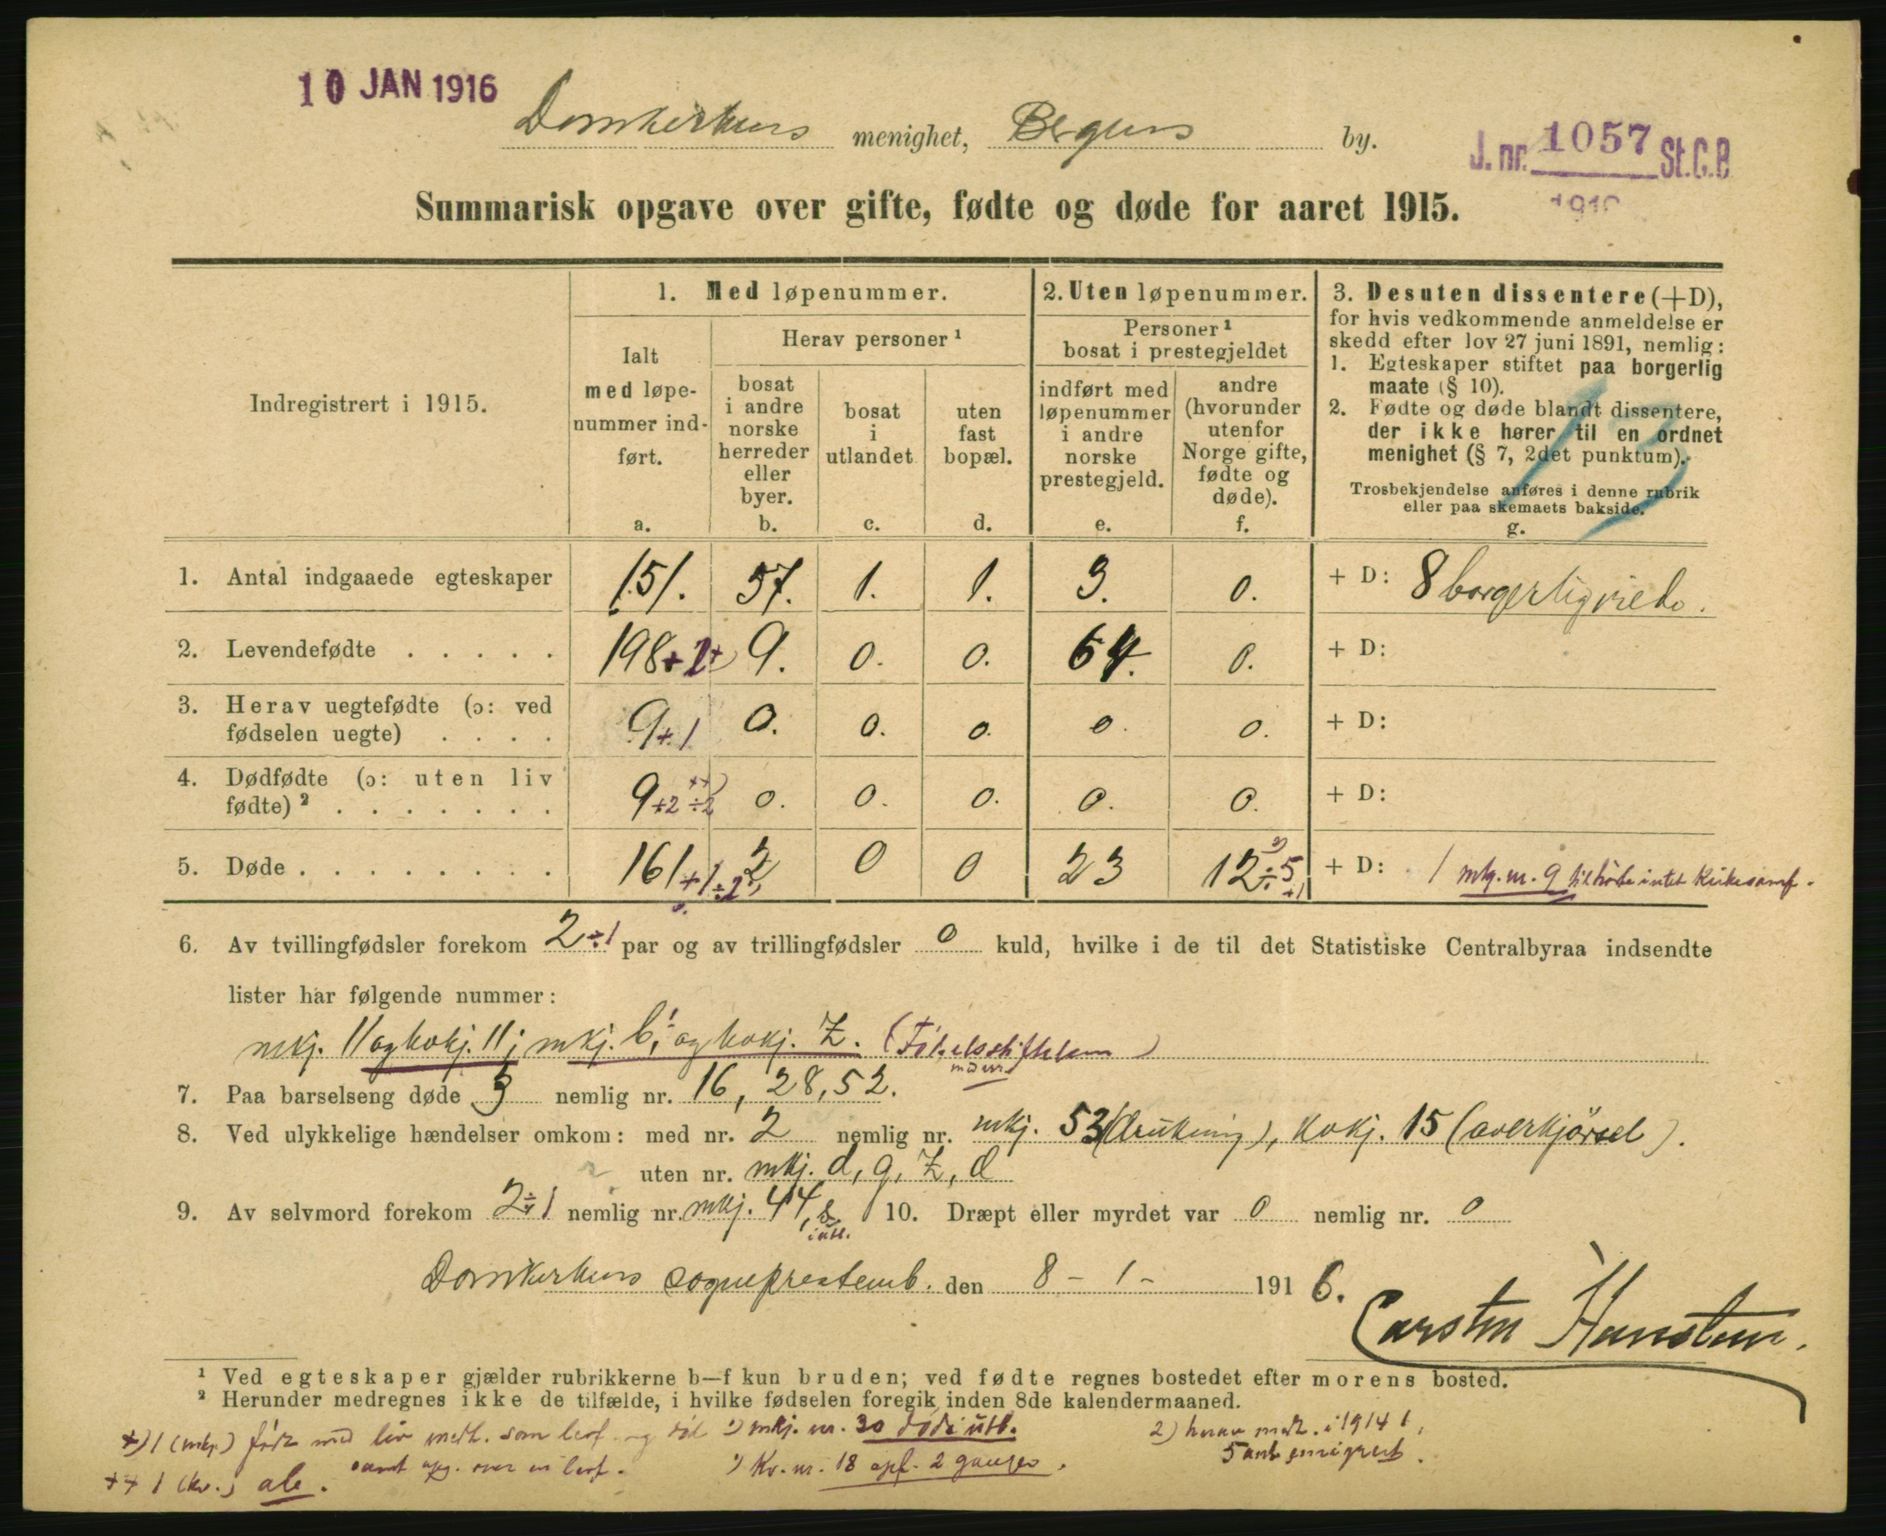 10 JAN 1916
Domkirkens menighet, Bergens by.
J. nr. 1057 St.C.B
Summarisk opgave over gifte, fødte og døde for aaret 1915.
Indregistrert i 1915.
1. Med løpenummer.
Ialt med løpe-
nummer ind-
ført.
a.
Herav personer ¹
bosat
i andre
norske
herreder
eller
byer.
b.
bosat
i
utlandet
c.
uten
fast
bopæl.
d.
2. Uten løpenummer.
Personer ¹
bosat i prestegjeldet
indført med
løpenummer
i andre
norske
prestegjeld.
e.
andre
(hvorunder
utenfor
Norge gifte,
fødte og
døde).
f.
3. Desuten dissentere (+D),
for hvis vedkommende anmeldelse er
skedd efter lov 27 juni 1891, nemlig:
1. Egteskaper stiftet paa borgerlig
maate (§ 10).
2. Fødte og døde blandt dissentere,
der ikke hører til en ordnet
menighet (§ 7, 2det punktum).
Trosbekjendelse anføres i denne rubrik
eller paa skemaets bakside.
g.
1. Antal indgaaede egteskaper 151. 37. 1. 1. 3. 0. + D: 8 borgerlig viede.
2. Levendefødte . . . . . 198 9. 0. 0. 64. 0. + D:
3. Herav uegtefødte (ɔ: ved
fødselen uegte) . . . . 9+1 0. 0. 0. 0. 0. + D:
4. Dødfødte (ɔ: uten liv
fødte) ² . . . . . . . 9+2÷2 0. 0. 0. 0. 0. + D:
5. Døde . . . . . . . . 161+1÷2 2 0 0 23 12÷5+1 + D: 1 mkj. nr. 9 tilhörte intet Kirkesamf.
6. Av tvillingfødsler forekom 2÷1 par og av trillingfødsler 0 kuld, hvilke i de til det Statistiske Centralbyraa indsendte
lister har følgende nummer:
mkj. 11 og kvkj. 11; mkj. b, og kvkj. Z. (Födselsstiftelsen)
7. Paa barselseng døde 3 nemlig nr. 16, 28, 52.
8. Ved ulykkelige hændelser omkom: med nr. 2 nemlig nr. mkj. 53 (drukning), kvkj. 15 (overkjörsel).
uten nr. mkj. d, g, Z, d
9. Av selvmord forekom 2÷1 nemlig nr. mkj. 44, 10. Dræpt eller myrdet var 0 nemlig nr. 0
Domkirkens sogneprestemb. den 8 - 1 - 1916.
Carsten Hansteen.
¹ Ved egteskaper gjælder rubrikkerne b—f kun bruden; ved fødte regnes bostedet efter morens bosted.
² Herunder medregnes ikke de tilfælde, i hvilke fødselen foregik inden 8de kalendermaaned.
+) 1 (mkj.) född med liv medt. som levf. og död ¹) mkj. nr. 30 död i utl. 2) herav medt. i 1914 1,
samt opg. over en levf. ¹) Kv. nr. 18 opf. 2 ganger. 5 ant. emigrert.
++ 1 (kv.)